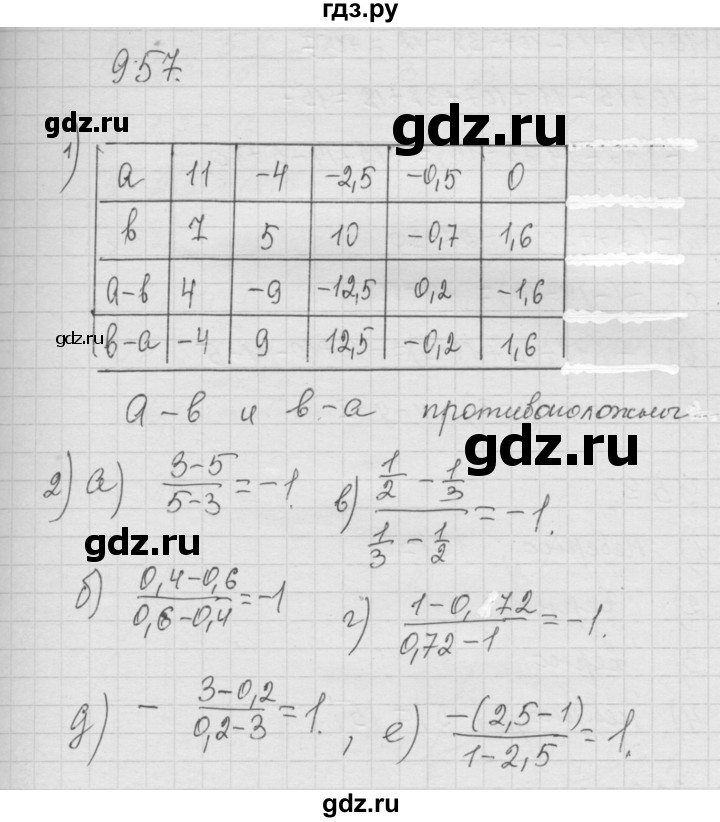 гдз.ру
957.
gdz.ru
gdz.ru
1)
а 11 -4 -2,5 -0,5 0
в 7 5 10 -0,7 1,6
а-в 4 -9 -12,5 0,2 -1,6
gdz.ru
в-а -4 9 12,5 -0,2 1,6
а-в и в-а противоположны
gdz.ru
2) а) (3-5)/(5-3) = -1. в) (1/2 - 1/3)/(1/3 - 1/2) = -1.
gdz.ru
б) (0,4-0,6)/(0,6-0,4) = -1 г) (1-0,72)/(0,72-1) = -1.
gdz.ru
д) - (3-0,2)/(0,2-3) = 1. , е) (-(2,5-1))/(1-2,5) = 1.
gdz.ru